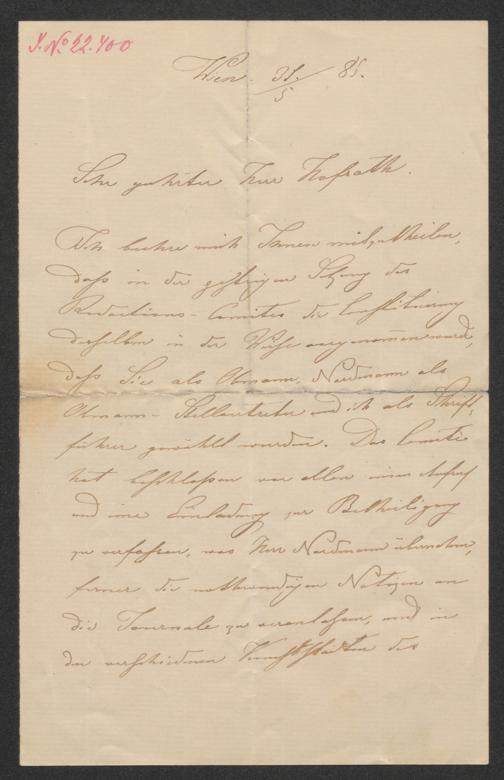 J. No 22.400
Wien 31/5 85.
Sehr geehrter Herr Hofrath.
Ich beehre mich Ihnen mitzutheilen,
daß in der gestrigen Sitzung des
Redactions-Comités die Constituirung
desselben in der Weise vorgenommen wurde,
daß Sie als Obmann, Nordmann als
Obmann-Stellvertreter und ich als Schrift-
führer gewählt wurden. Das Comité
hat beschlossen vor allem einen Aufruf
und eine Einladung zur Betheiligung
zu verfassen, was Herr Nordmann übernahm,
ferner die nothwendigen Notizen an
die Journale zu veranlassen, und in
den verschiedenen des